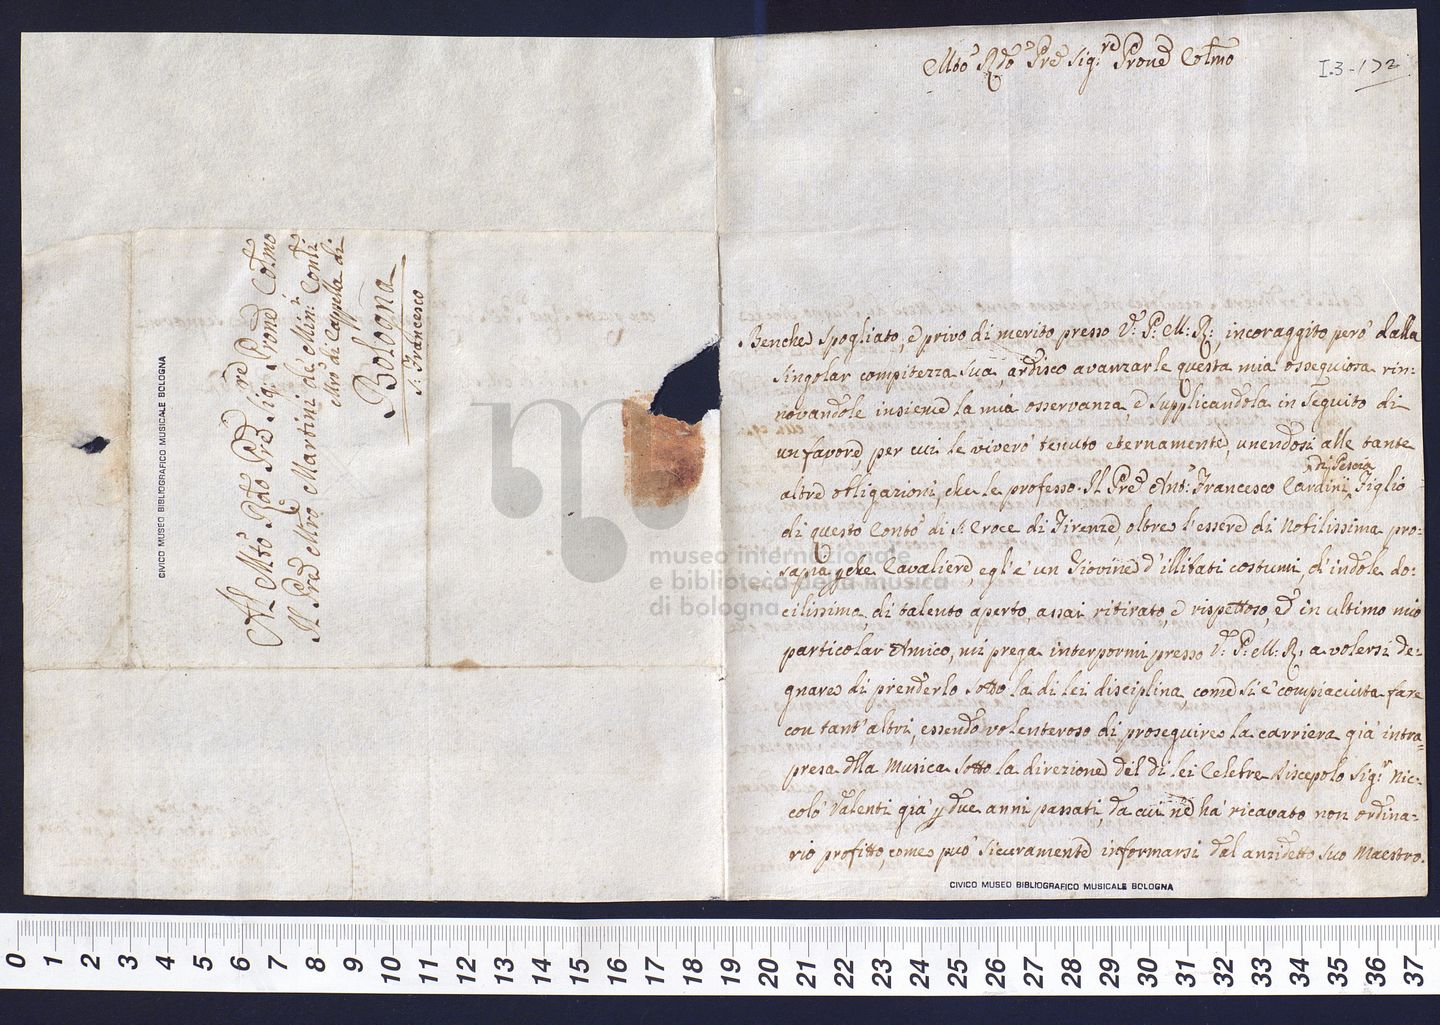 Al Mto Rdo Pre Sigre Prone Colmo
Il Pre Mro Martini de Minri Conli
Mro di Cappella di
Bologna
S. Francesco
CIVICO MUSEO BIBLIOGRAFICO MUSICALE BOLOGNA
Mto Rdo Pre Sigre Prone Colmo
I.3-172
Benche spogliato, e privo di merito presso V. P. M. R., incoraggito però dalla
singolar compitezza sua, ardisco avanzarle questa mia ossequiosa rin:
novandole insieme la mia osservanza e supplicandola in seguito di
un favore, per cui le viverò tenuto eternamente, unendosi alle tante
altre obligazioni, che le professo. Il Pre Ant. Francesco Cardini di Pescia Figlio
di questo Conto di S. Croce di Firenze, oltre l'essere di Nobilissima pro:
sapia, che Cavaliere, egl'è un Giovine d'illibati costumi, d'indole do:
cilissima, di talento aperto, assai ritirato, e rispettoso, ed in ultimo mio
particolar Amico, mi prega interpormi presso V. P. M. R. a volersi de:
gnare di prenderlo sotto la di lei disciplina, come si è compiaciuta fare
con tant'altri, essendo volenteroso di proseguire la carriera già intra=
presa della Musica sotto la direzione del di lei Celebre Discepolo Sigr Nic:
colò Valenti già p due anni passati, da cui ne ha ricavato non ordina:
rio profitto, come può sicuramente informarsi dal anzidetto suo Maestro.
CIVICO MUSEO BIBLIOGRAFICO MUSICALE BOLOGNA
museo internazionale
e biblioteca della musica
di bologna
0 1 2 3 4 5 6 7 8 9 10 11 12 13 14 15 16 17 18 19 20 21 22 23 24 25 26 27 28 29 30 31 32 33 34 35 36 37